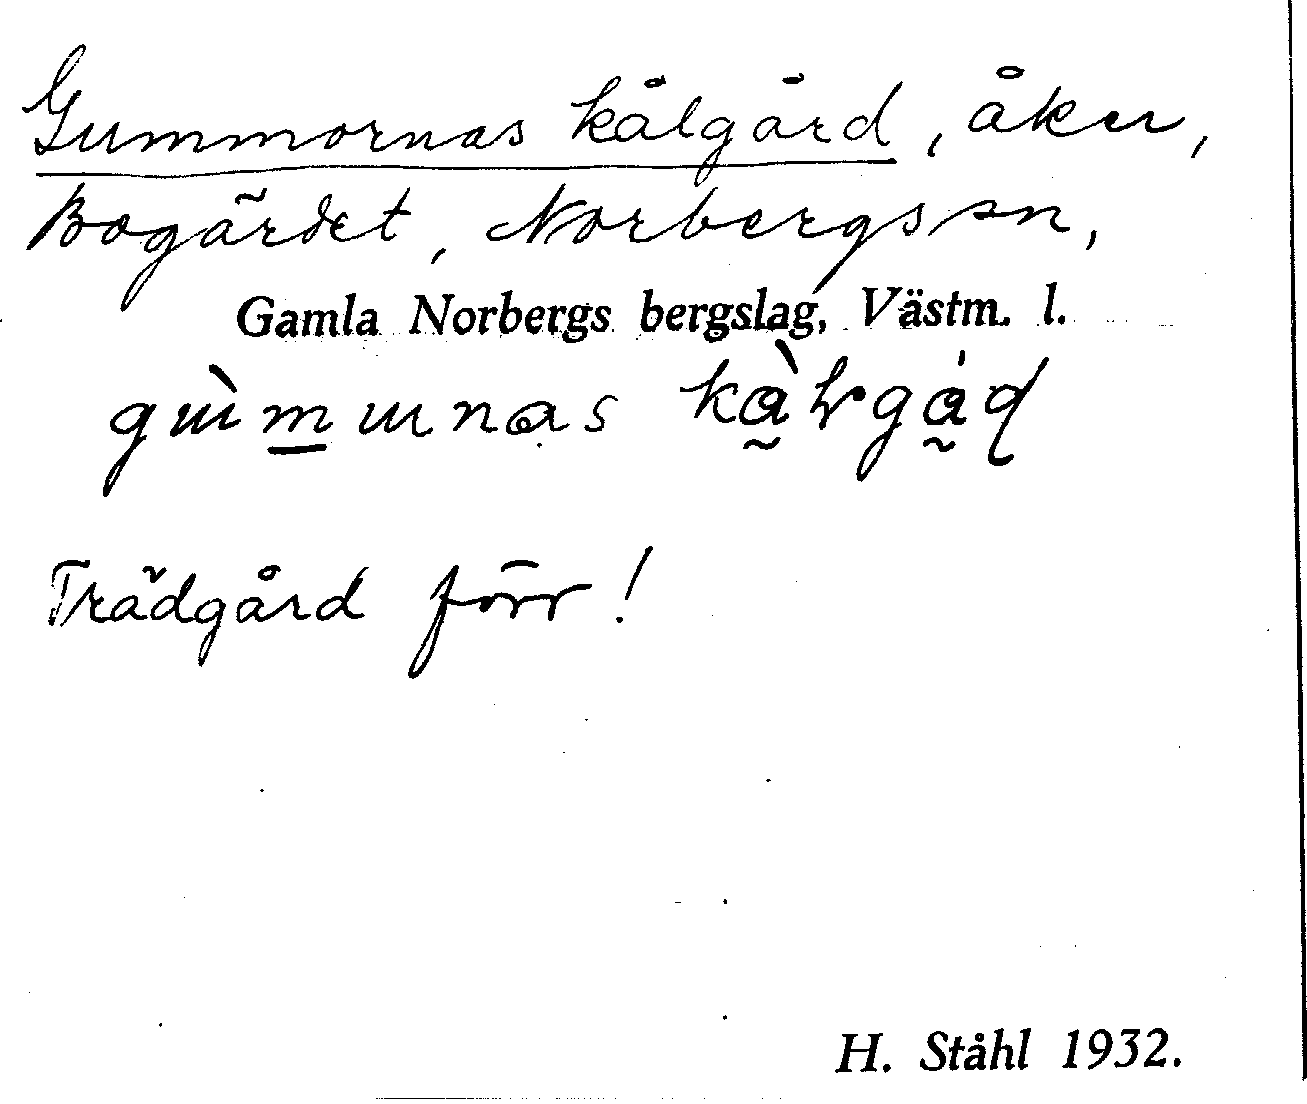 Gummornas kålgård, åker,
Bogärdet, Norbergs sn,
Gamla Norbergs bergslag, Västm. l.
Trädgård förr!
H. Ståhl 1932.